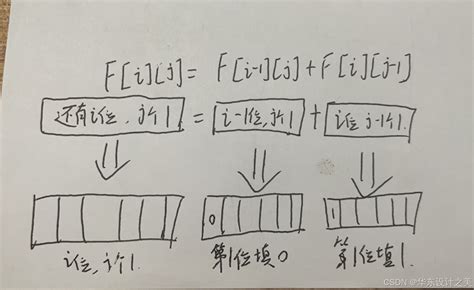 F[i][j] = F[i-1][j] + F[i][j-1]
还有i位，j个1 = i-1位，j个1 + i位 j-1个1.
0 1
i位，j个1. 第1位填0 第1位填1.
CSDN @华东设计之美